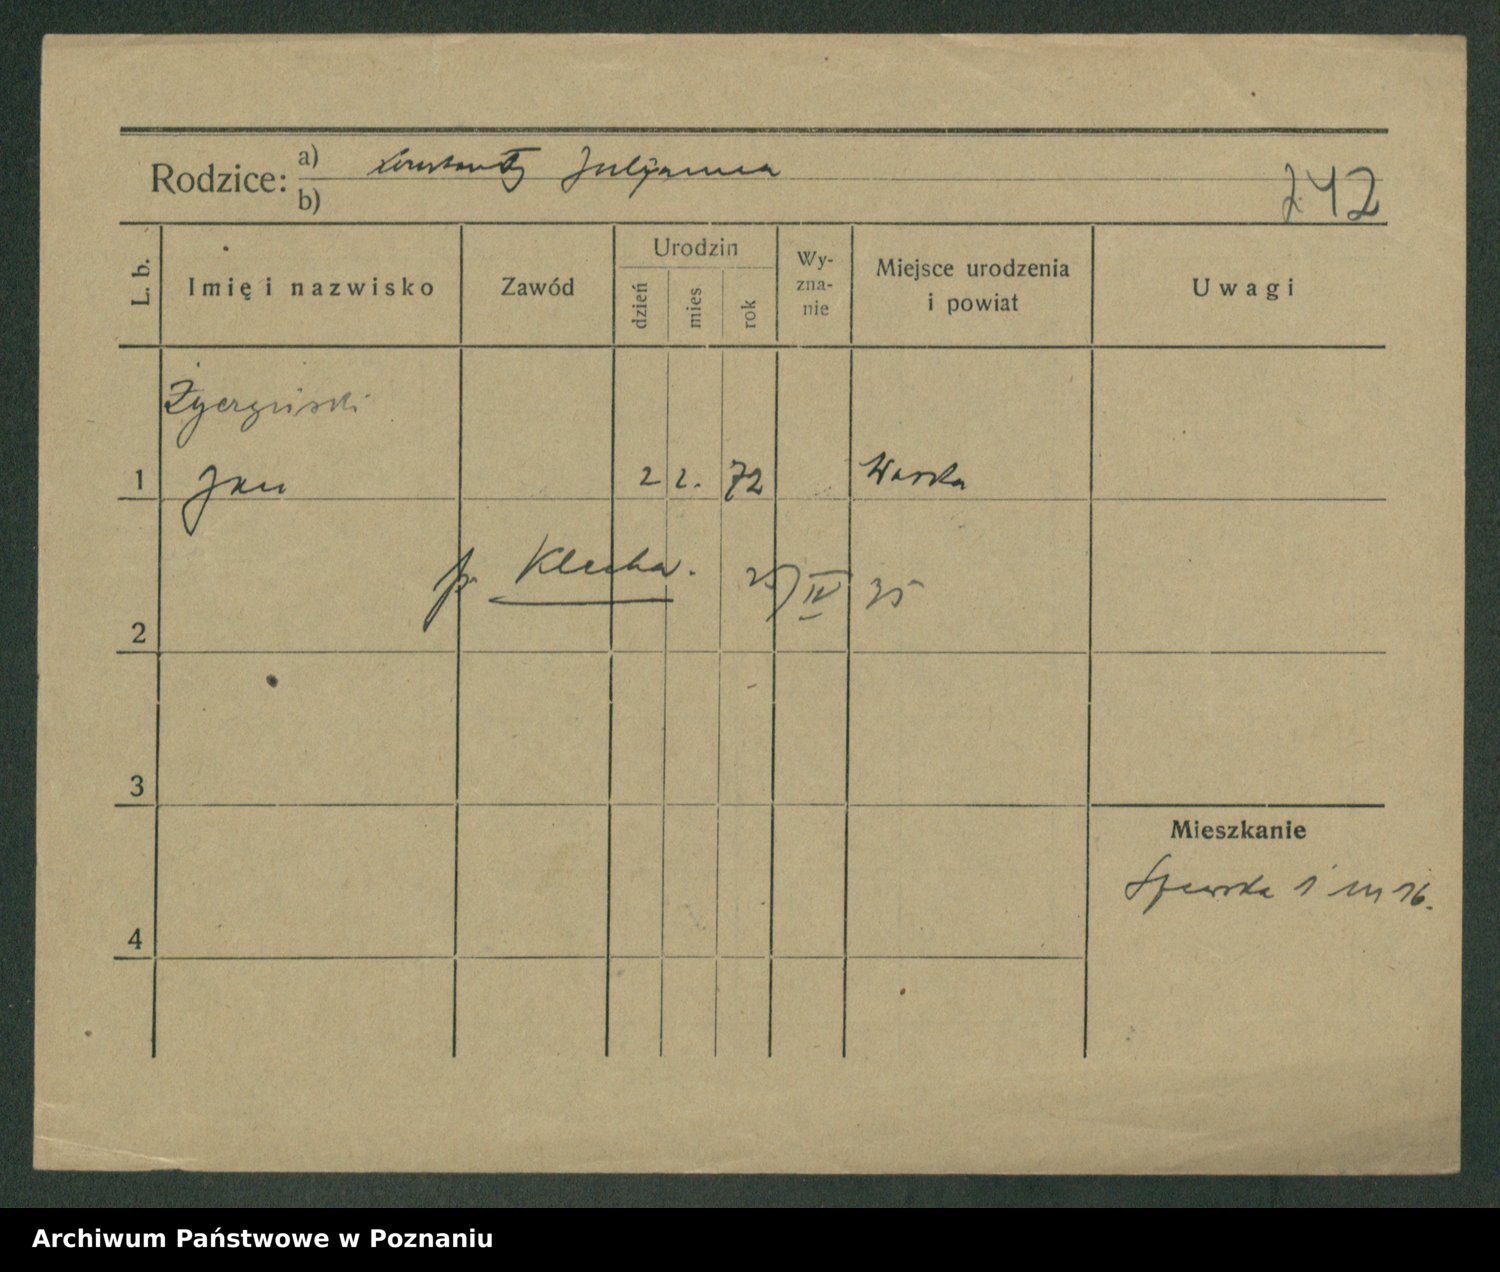 Rodzice: a) Konstanty Julijanna
b)
242
L. b.
Imię i nazwisko
Zawód
Urodzin
dzień
mies
rok
Wy-
zna-
nie
Miejsce urodzenia
i powiat
Uwagi
1
Jan 2 2. 72 Warska
Klecha. 25 IV 35
2
3
Mieszkanie
1 m 16.
4
Archiwum Państwowe w Poznaniu